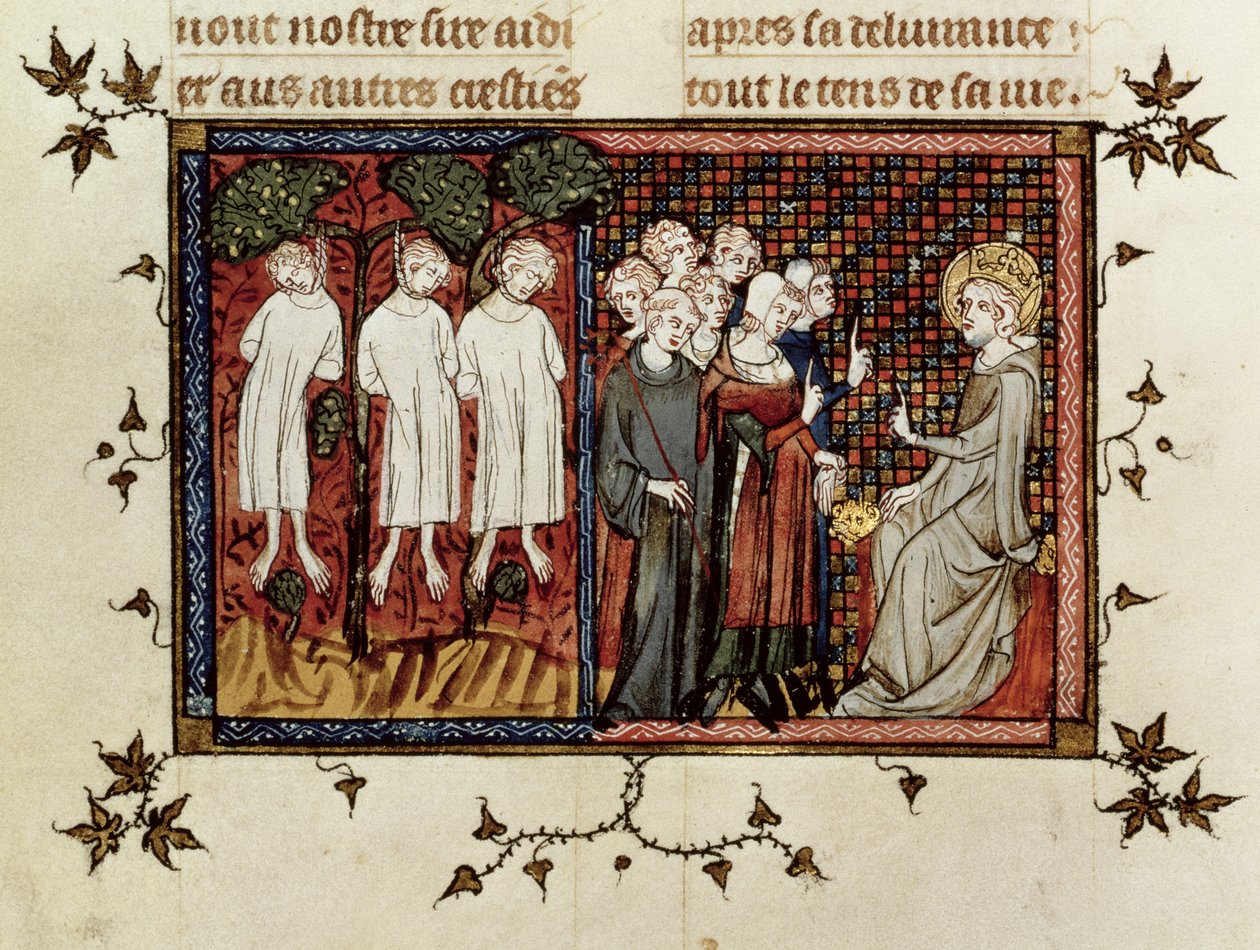 uout nostre sire aidi
er aus autres crestiēs
apres sa deliurance
tout le tens de sa uie.